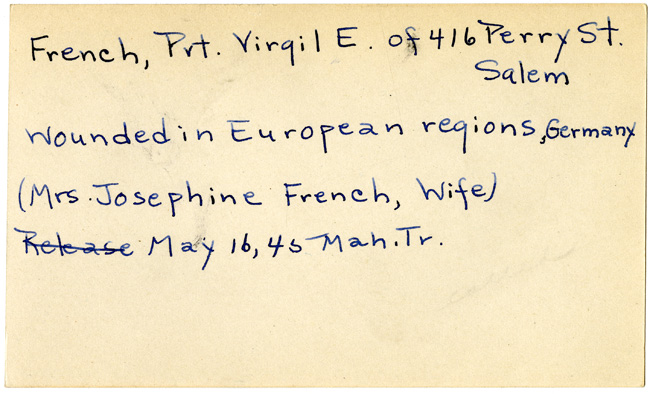 French, Pvt. Virgil E. of 416 Perry St.
Salem
Wounded in European regions, Germany
(Mrs. Josephine French, Wife)
Release May 16, 45 Mah. Tr.